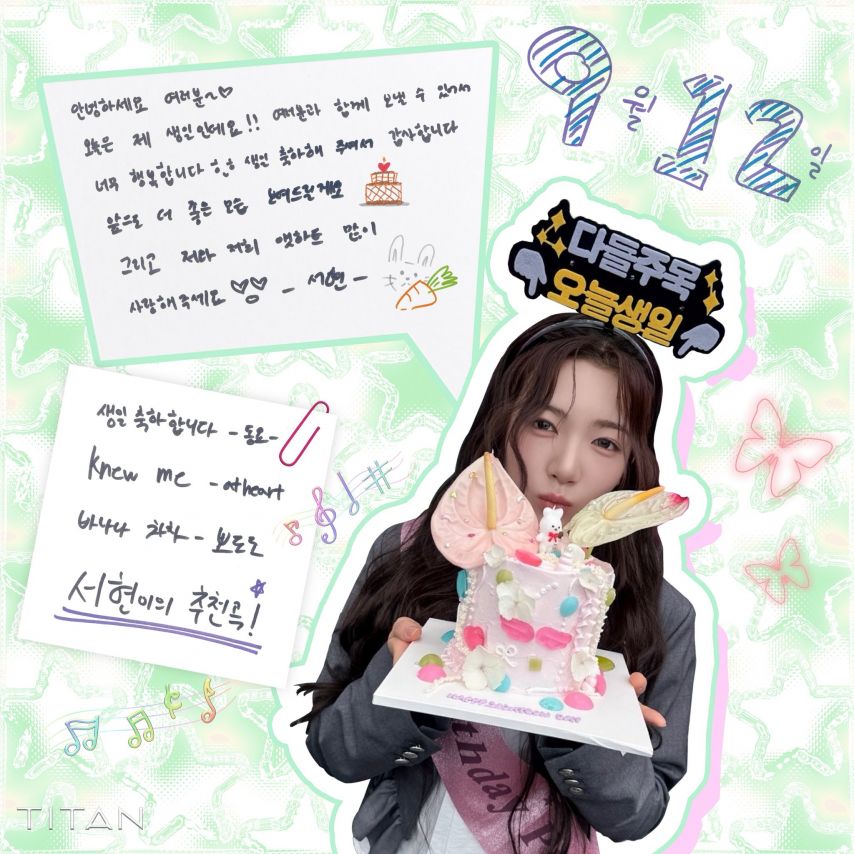 안녕하세요 여러분~♡
오늘은 제 생일인데요!! 여러분과 함께 보낼 수 있어서
너무 행복합니다 생일 축하해 주셔서 감사합니다
앞으로 더 좋은 모습 보여드릴게요
그리고 저와 저희 앳하트 많이
사랑해주세요 - 서현 -
9월 12일
다들주목
오늘생일
생일 축하합니다 - 동요 -
Knew me - atheart
바나나 차차 - 뽀로로
서현이의 추천곡!
thday
TITAN